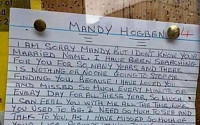 MANDY HOGBEN
I AM SORRY MANDY, BUT I DON'T KNOW YOUR
MARRIED NAME. I HAVE BEEN SEARCHING
FOR YOU FOR SO MANY YEARS AND THERE
IS NOTHING OR NO ONE GOING TO STOP ME
FINDING YOU, BECAUSE I HAVE LOVED YOU
AND MISSED YOU SO MUCH EVERY MINUTE OF
EVERY DAY FOR ALL THESE YEARS, SO MUCH.
I CAN FEEL YOU WITH ME ALL THE TIME AS
YOU USED TO BE. I NEED TO SEE YOU AND
TALK TO YOU, AS I HAVE MISSED SO MUCH OF